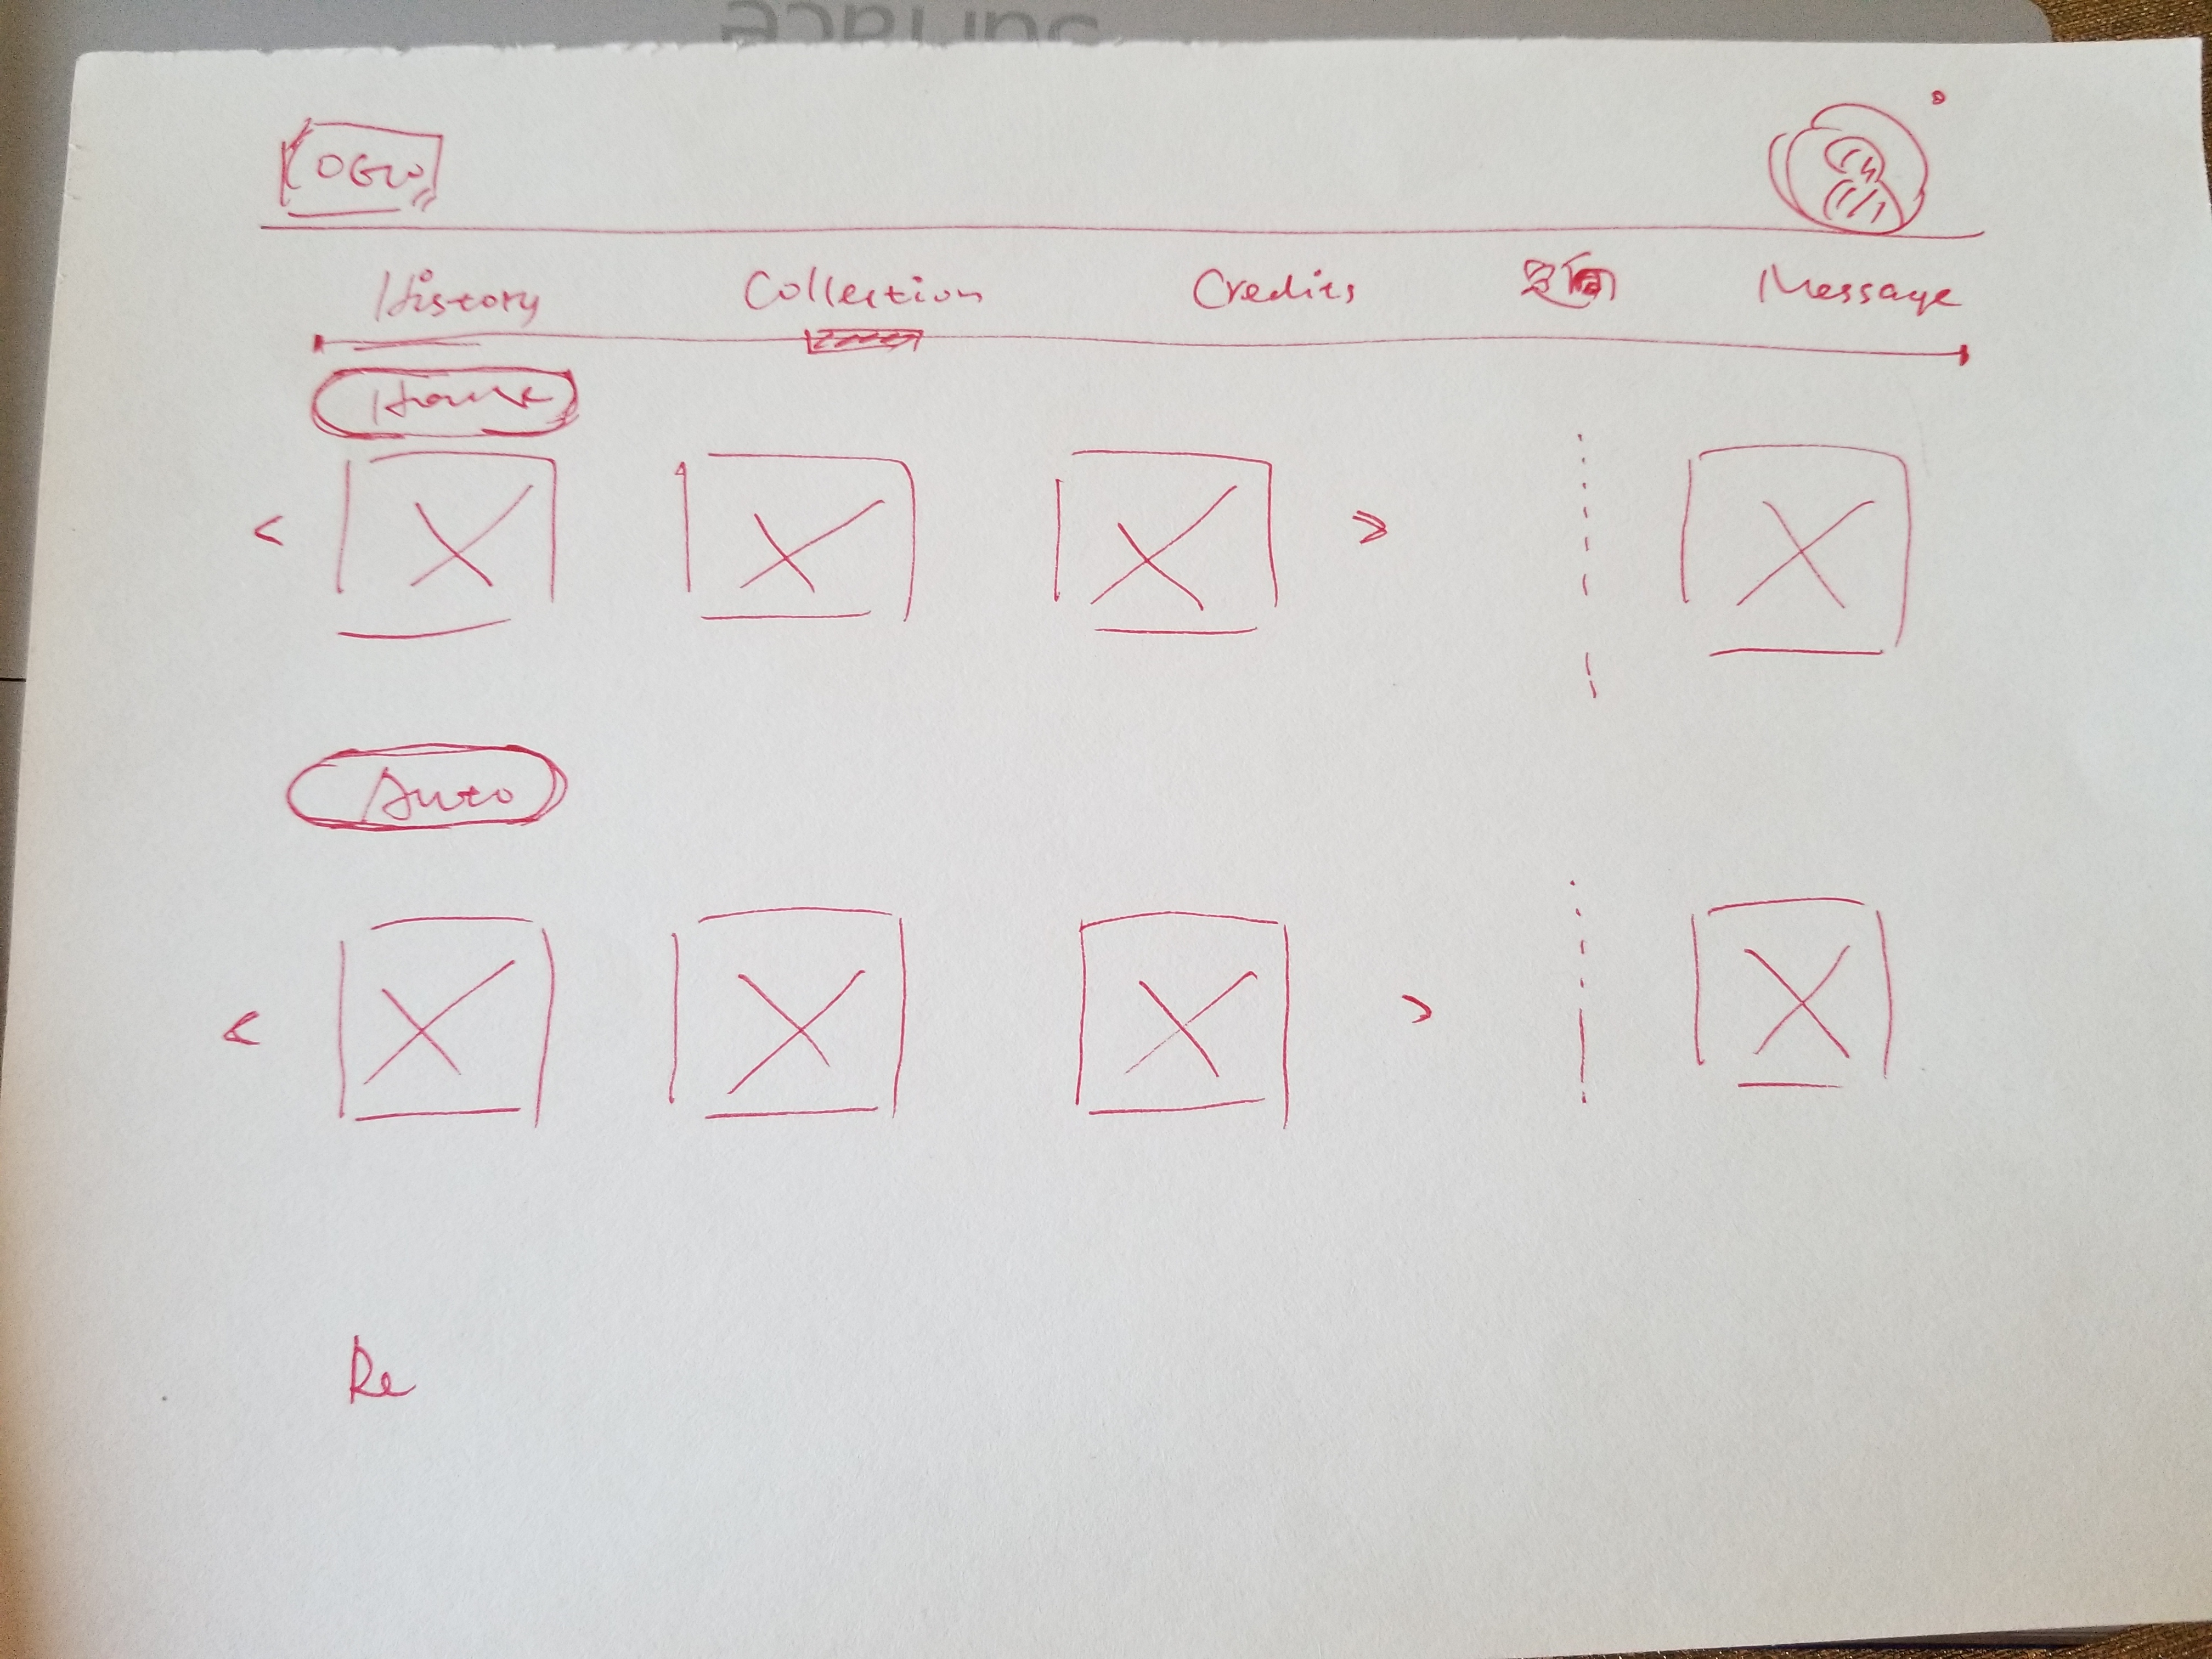 LOGO
History Collection Credits Message
Home
< >
Auto
< >
Re